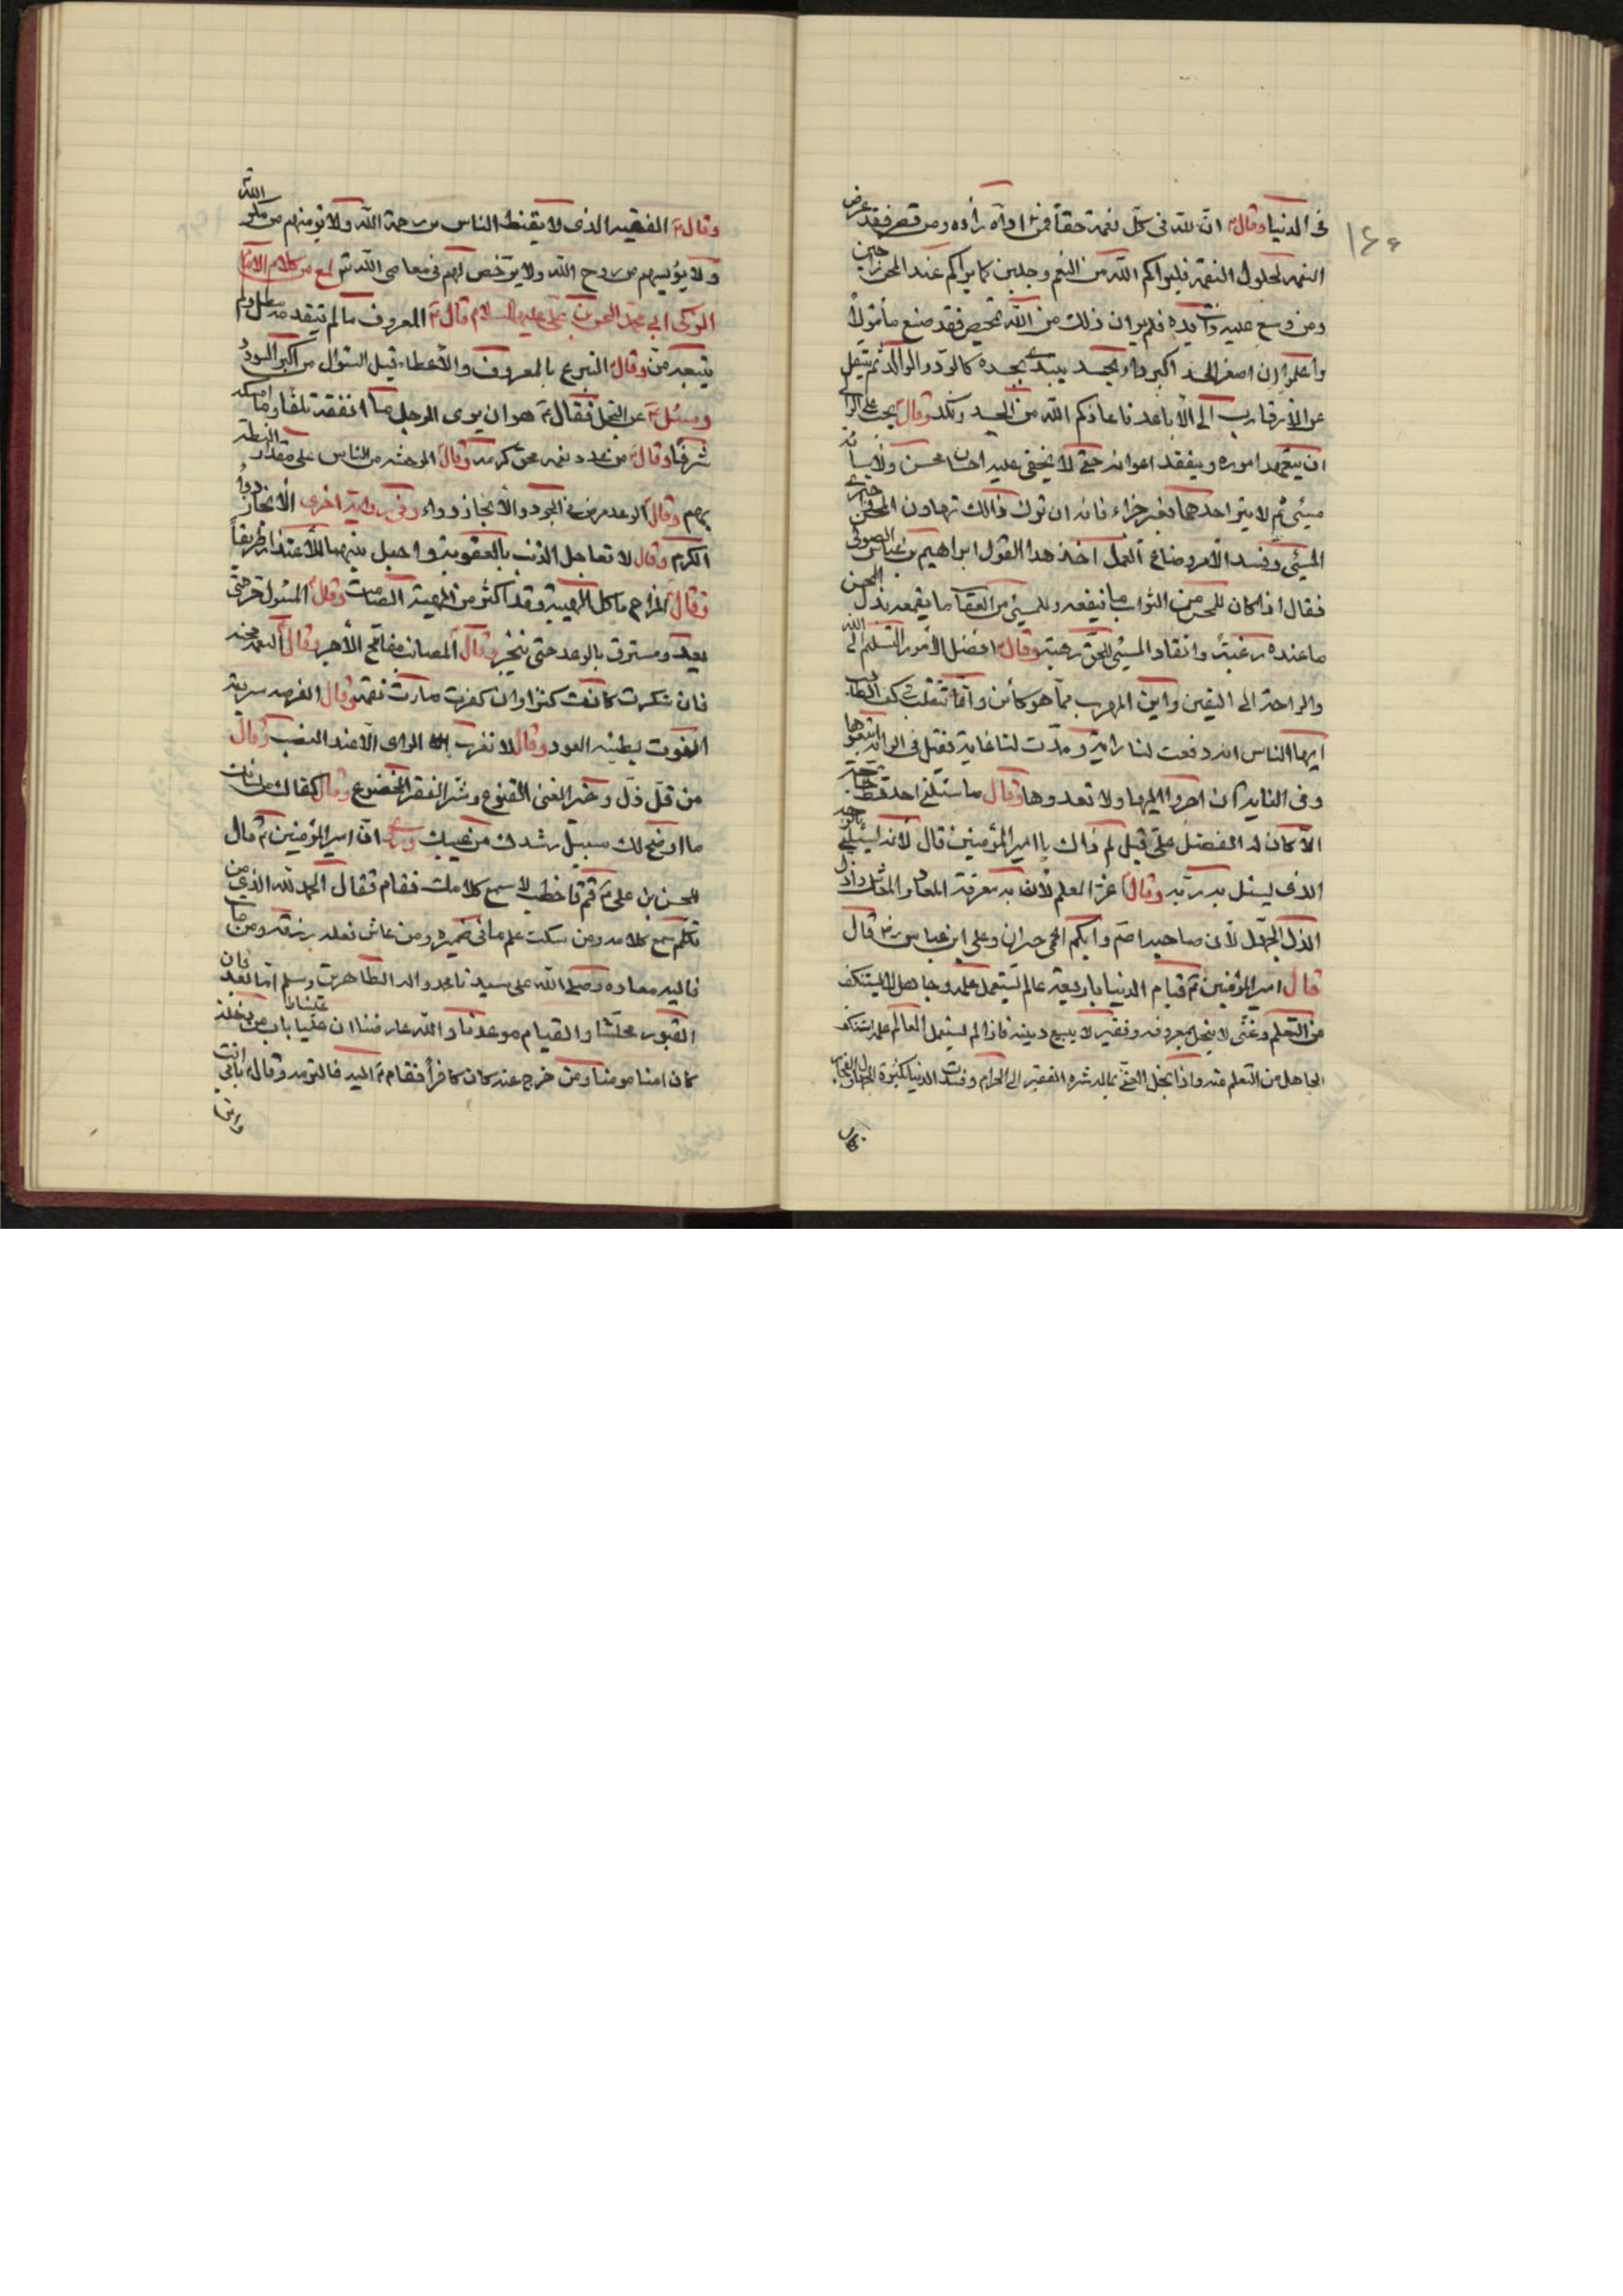 ١٤٤
فى الدنيا وقال ان لله فى كل نعمة حقا فمن اداه زاده ومن قصر فقد عرض
النعمه لحلول النقمه فليراكم الله من النعم وجلين كما يراكم عند المحن
ومن وسع عليه ذات يده فلم ير ان ذلك من الله تمحيص فقد صنع مأمولا
واعلموا ان اصغر الحسد اكبر داء
عن الاقارب الى الاباعد فاعاذكم الله من الحسد ونكد وقال يجب على الوالى
ان يتعهد اموره ويتفقد اعوانه حتى لا يخفى عليه احسان محسن ولا اساءة
مسيئ ثم لا يترك احدهما بغير جزاء فانه ان ترك ذالك تهاون المحسن
المسيئ وفسد الامر وضاع العمل اخذ هذا القول ابراهيم بن عباس الصولى
فقال اذا كان للمحسن من الثواب ما ينفعه وللمسيئ من العقاب ما يقمعه بذل المحسن
ما عنده رغبة وانقاد المسيئ للحق رهبة وقال افضل الامور التسليم الى الله
والراحة الى اليقين واين المهرب مما هو كائن وانما تتقلب فى كف الطالب
ايها الناس انه رفعت لنا راية ومدت لنا غاية فقيل فى الراية اتبعوها
وفى الغاية ان اجروا اليها ولا تعدوها وقال ما سئلنى احد قط حاجة
الا كان له الفضل على قيل لم ذاك يا امير المؤمنين قال لانه
الذى يسئل به ربه وقال عز العلم لانه به معرفة المعاد والمعاش وذل
الذل الجهل لان صاحبه اصم وابكم اعمى حيران وعلى ابن عباس قال
قال امير المؤمنين قيام الدنيا باربعة عالم يستعمل علمه وجاهل لا يستنكف
من التعلم وغنى لا يبخل بمعروفه وفقير لا يبيع دينه فاذا لم يستعمل العالم علمه استنكف
الجاهل من التعلم منه واذا بخل الغنى بماله شره الفقير الى الحرام وفسدت الدنيا لكثرة الجهال والفجار
وقال الفقيه الذى لا يقنط الناس من رحمة الله ولا يؤمنهم من مكر الله
ولا يؤيسهم من روح الله ولا يرخص لهم فى معاصى الله تم لمع من كلام الامام
الزكى ابى محمد الحسن بن على عليه السلام قال المعروف ما لم يتقدمه مطل ولم
يتبعه من وقال التبرع بالمعروف والاعطاء قبل السئوال من اكبر السودد
وسئل عن البخل فقال هو ان يرى الرجل ما انفقه تلفا وما امسكه
شرفا وقال من عدد نعمه محق كرمه وقال الوحشه من الناس على مقدار الفطنة
بهم وقال الوعد مرض فى الجود والانجاز دواء وفى رواية اخرى الانجاز دواء
الكرم وقال لا تعاجل الذنب بالعقوبة واجعل بينهما للاعتذار طريقا
وقال المزاح ياكل الهيبة وقد اكثر من الهيبة الصامت وقال المسئول حر حتى
يعد ومسترق بالوعد حتى ينجز وقال المصائب مفاتيح الاجر وقال النعمه محنه
فان شكرت كانت كنزا وان كفرت صارت نقمة وقال الفرصه سريعة
الفوت بطيئه العود وقال لا تعرف الراى الا عند الغضب وقال
من قل ذل وخير الغنى القنوع وشر الفقر الخضوع وقال كفاك من لسانك
ما اوضح لك سبيل رشدك من غيك وروى ان امير المؤمنين قال
للحسن بن على قم فاخطب لا سمع كلامك فقام فقال الحمد لله الذى من
تكلم سمع كلامه ومن سكت علم ما فى ضميره ومن عاش فعليه رزقه ومن مات
فاليه معاده وصلى الله على سيدنا محمد واله الطاهرين وسلم اما بعد فان
القبور محلتنا والقيام موعدنا والله عارضنا ان عليا باب من دخله
كان امنا مومنا ومن خرج عنه كان كافرا فقام اليه فالتزمه وقال بابى انت
وامى